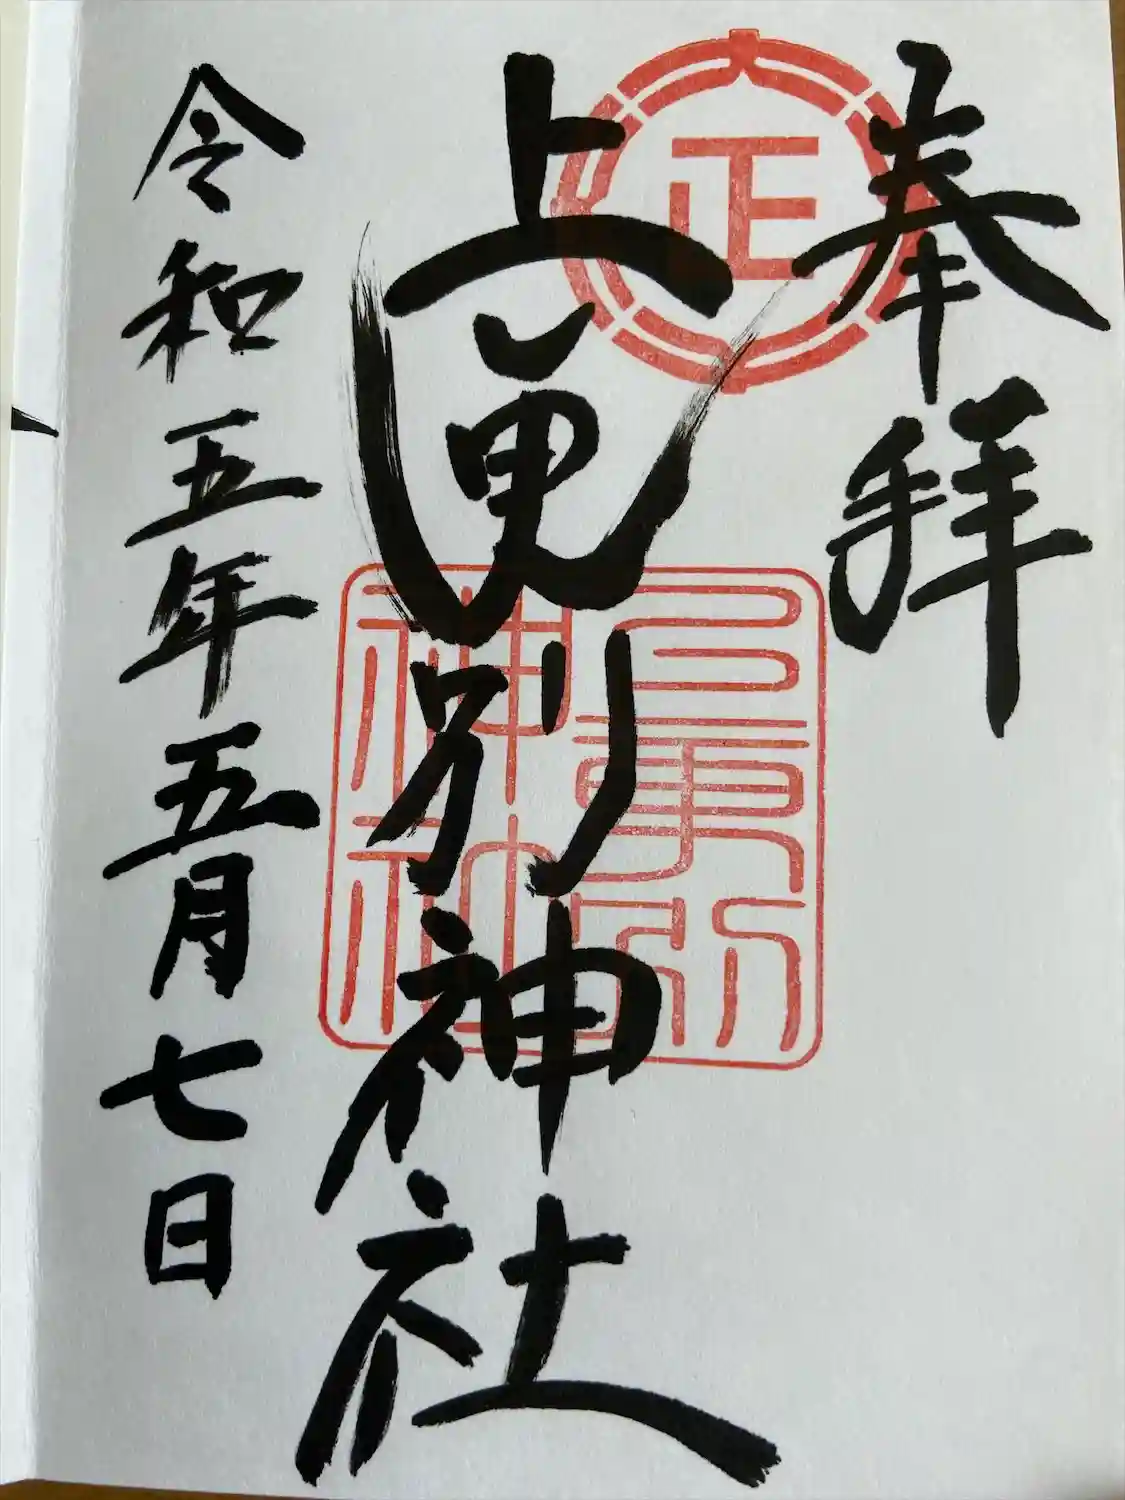 奉拝
正
上更別神社
上更別神社
令和五年五月七日